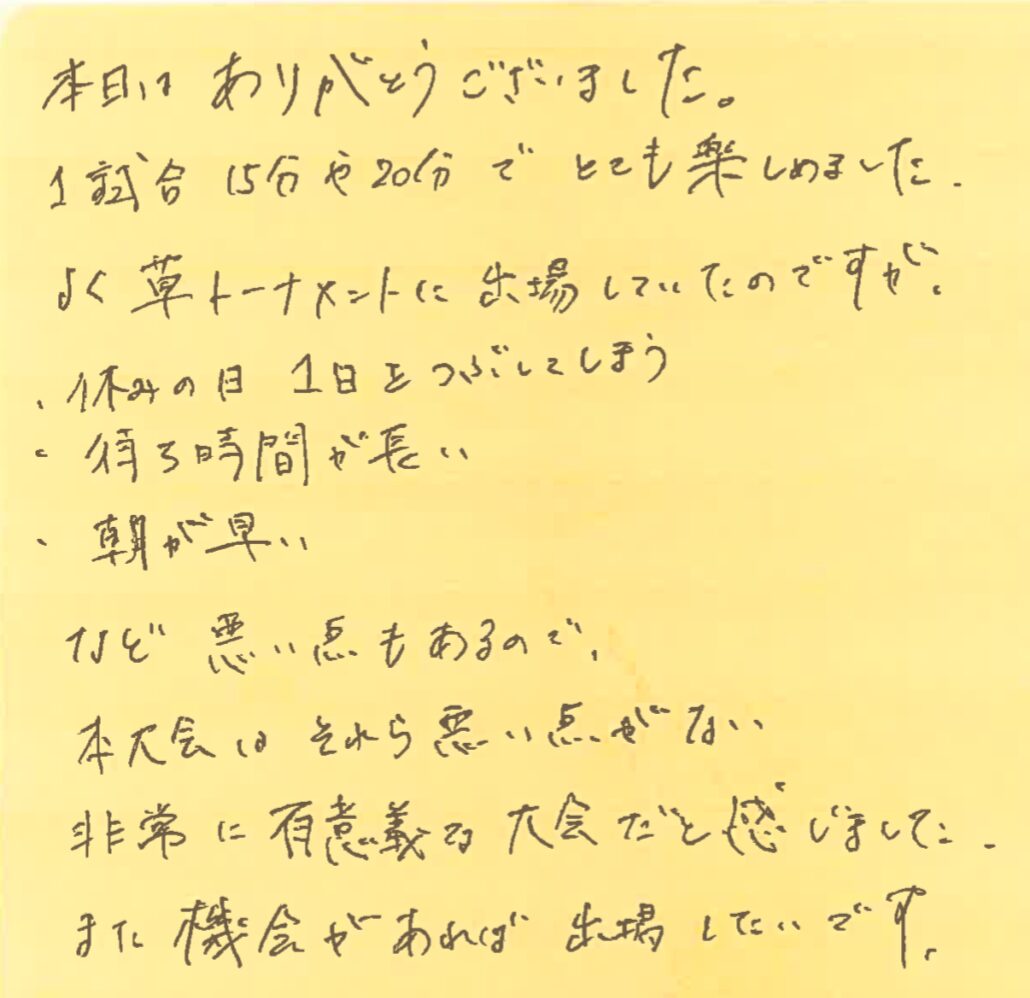 本日は ありがとうございました。
1試合 15分や20分で とても楽しめました.
よく草トーナメントに 出場していたのですが、
・休みの日 1日をつぶしてしまう
・待ち時間が長い
・朝が早い
など 悪い点もあるので、
本大会は それら悪い点がない
非常に有意義な 大会だと感じました.
また機会があれば 出場したいです。